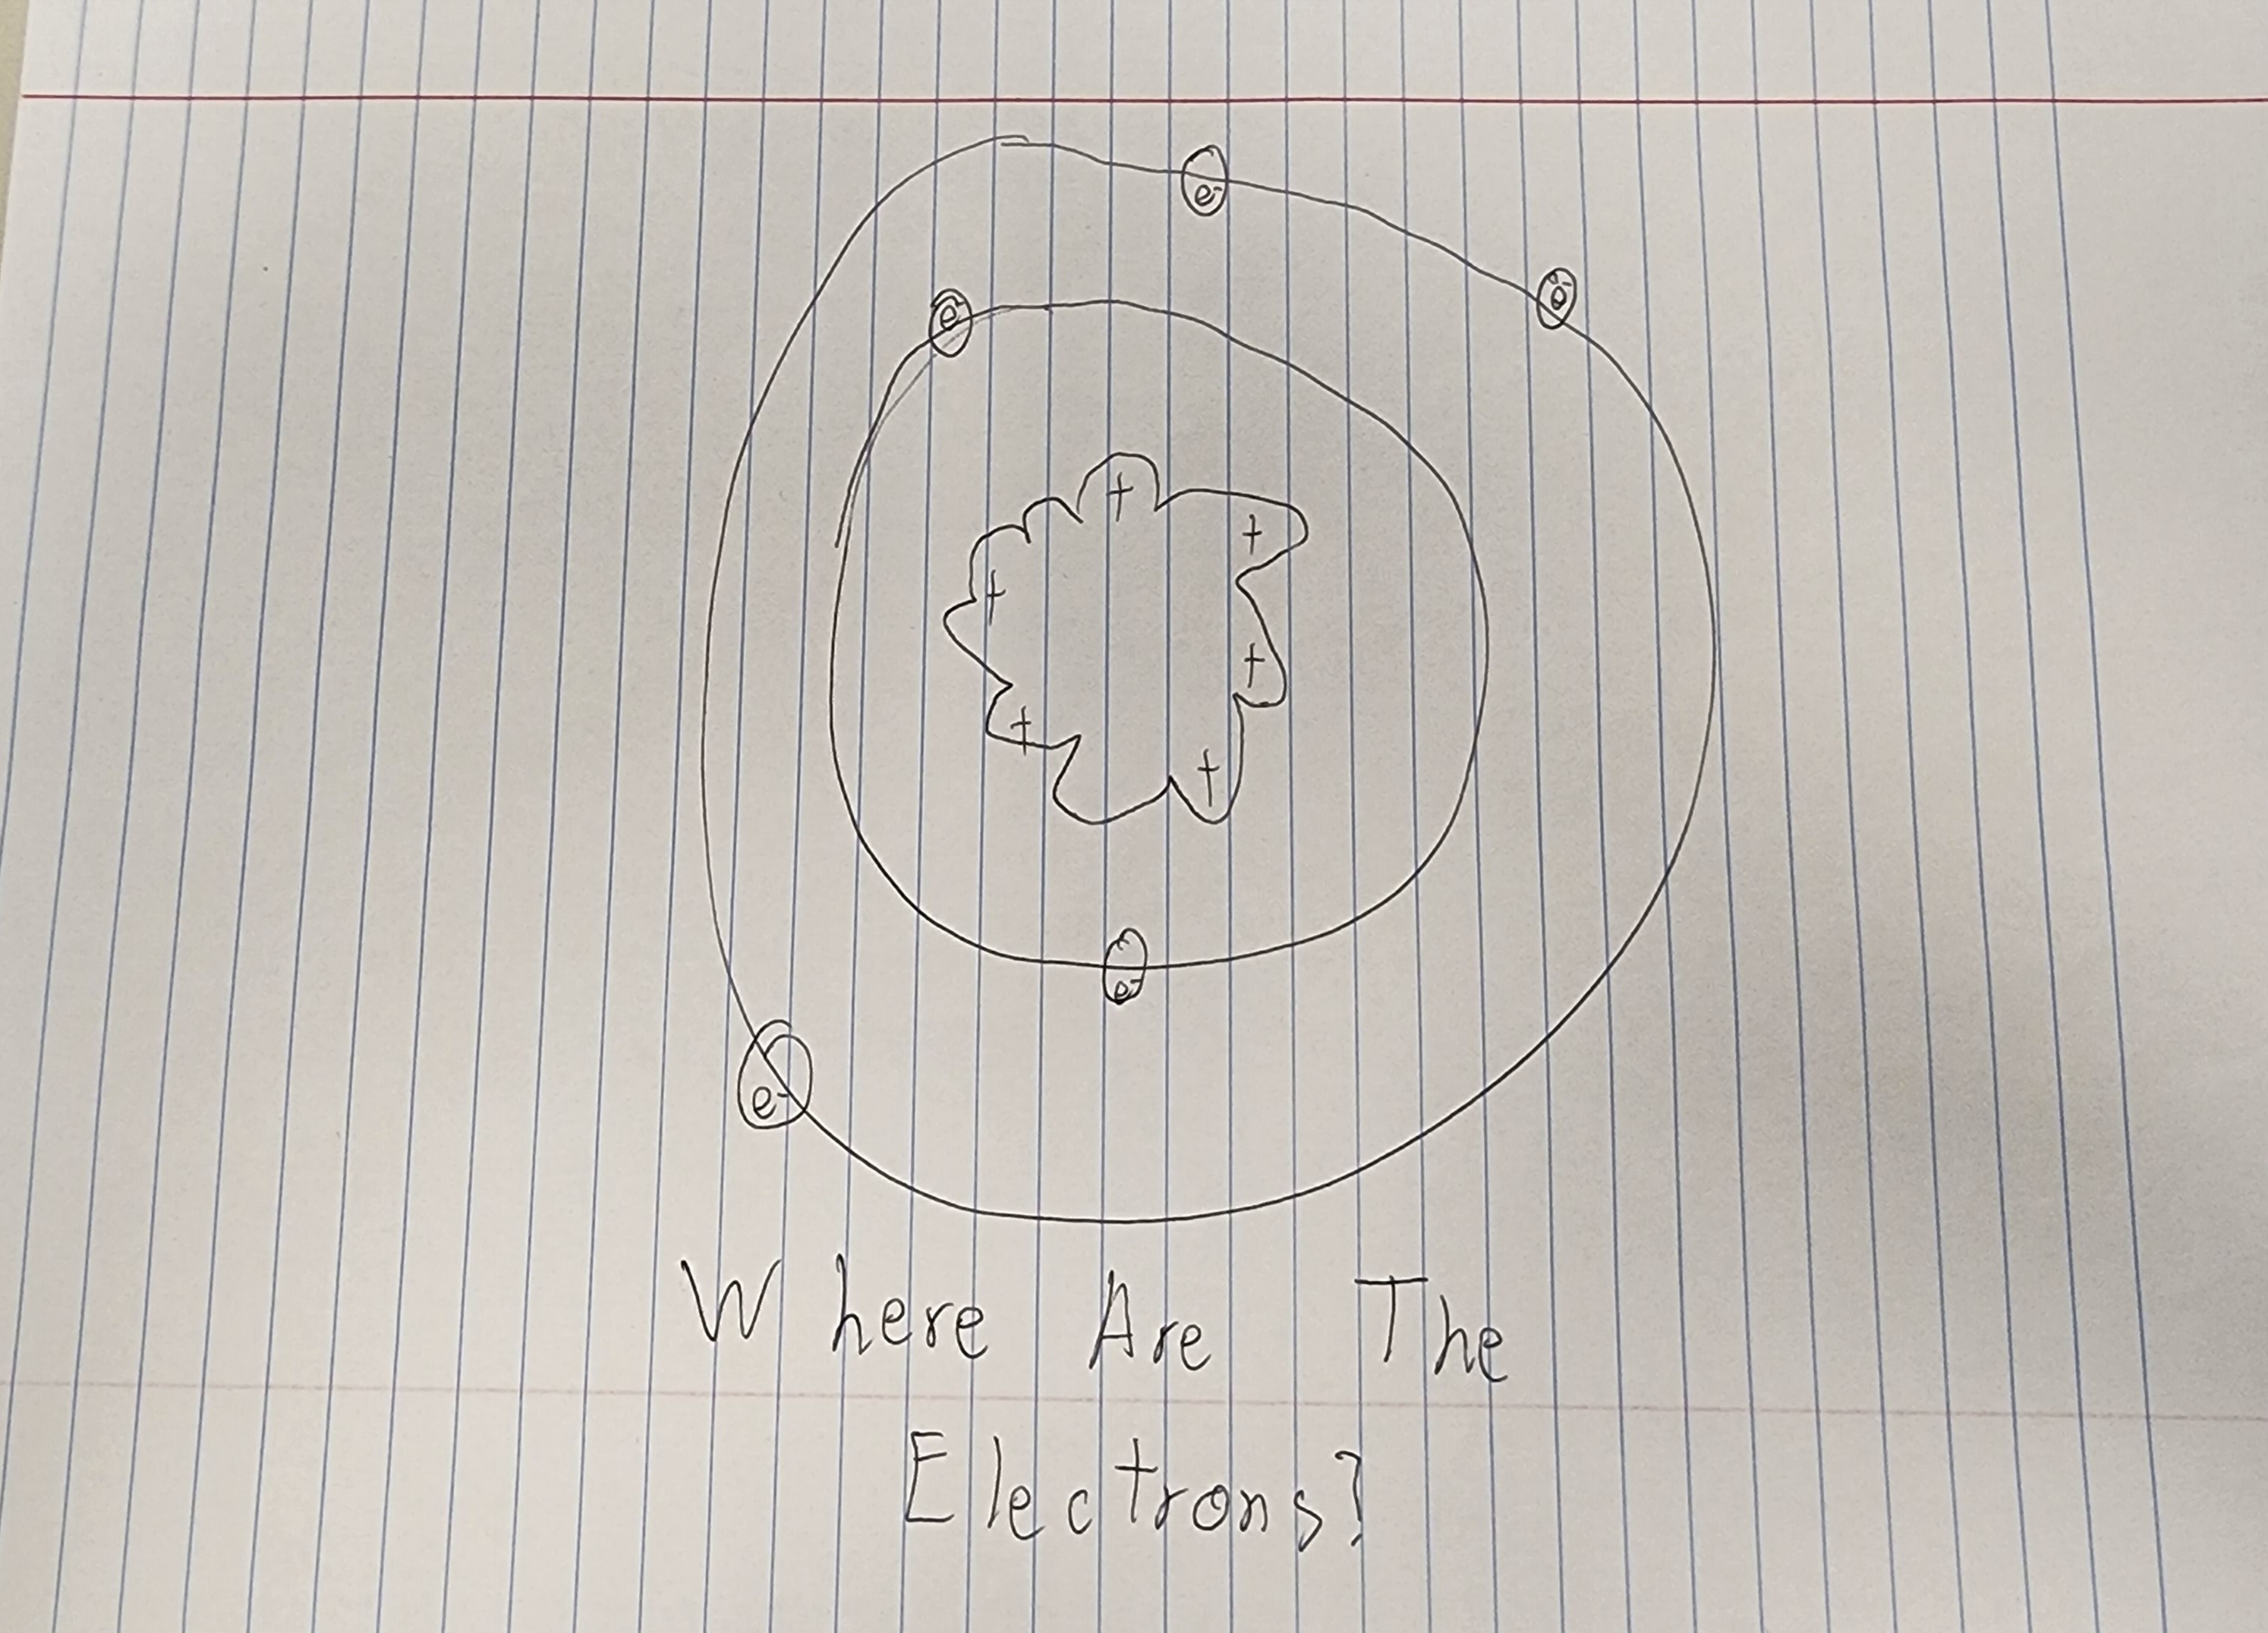 e-
e-
e-
+
+
+
+
+
+
e-
e-
Where Are The
Electrons?